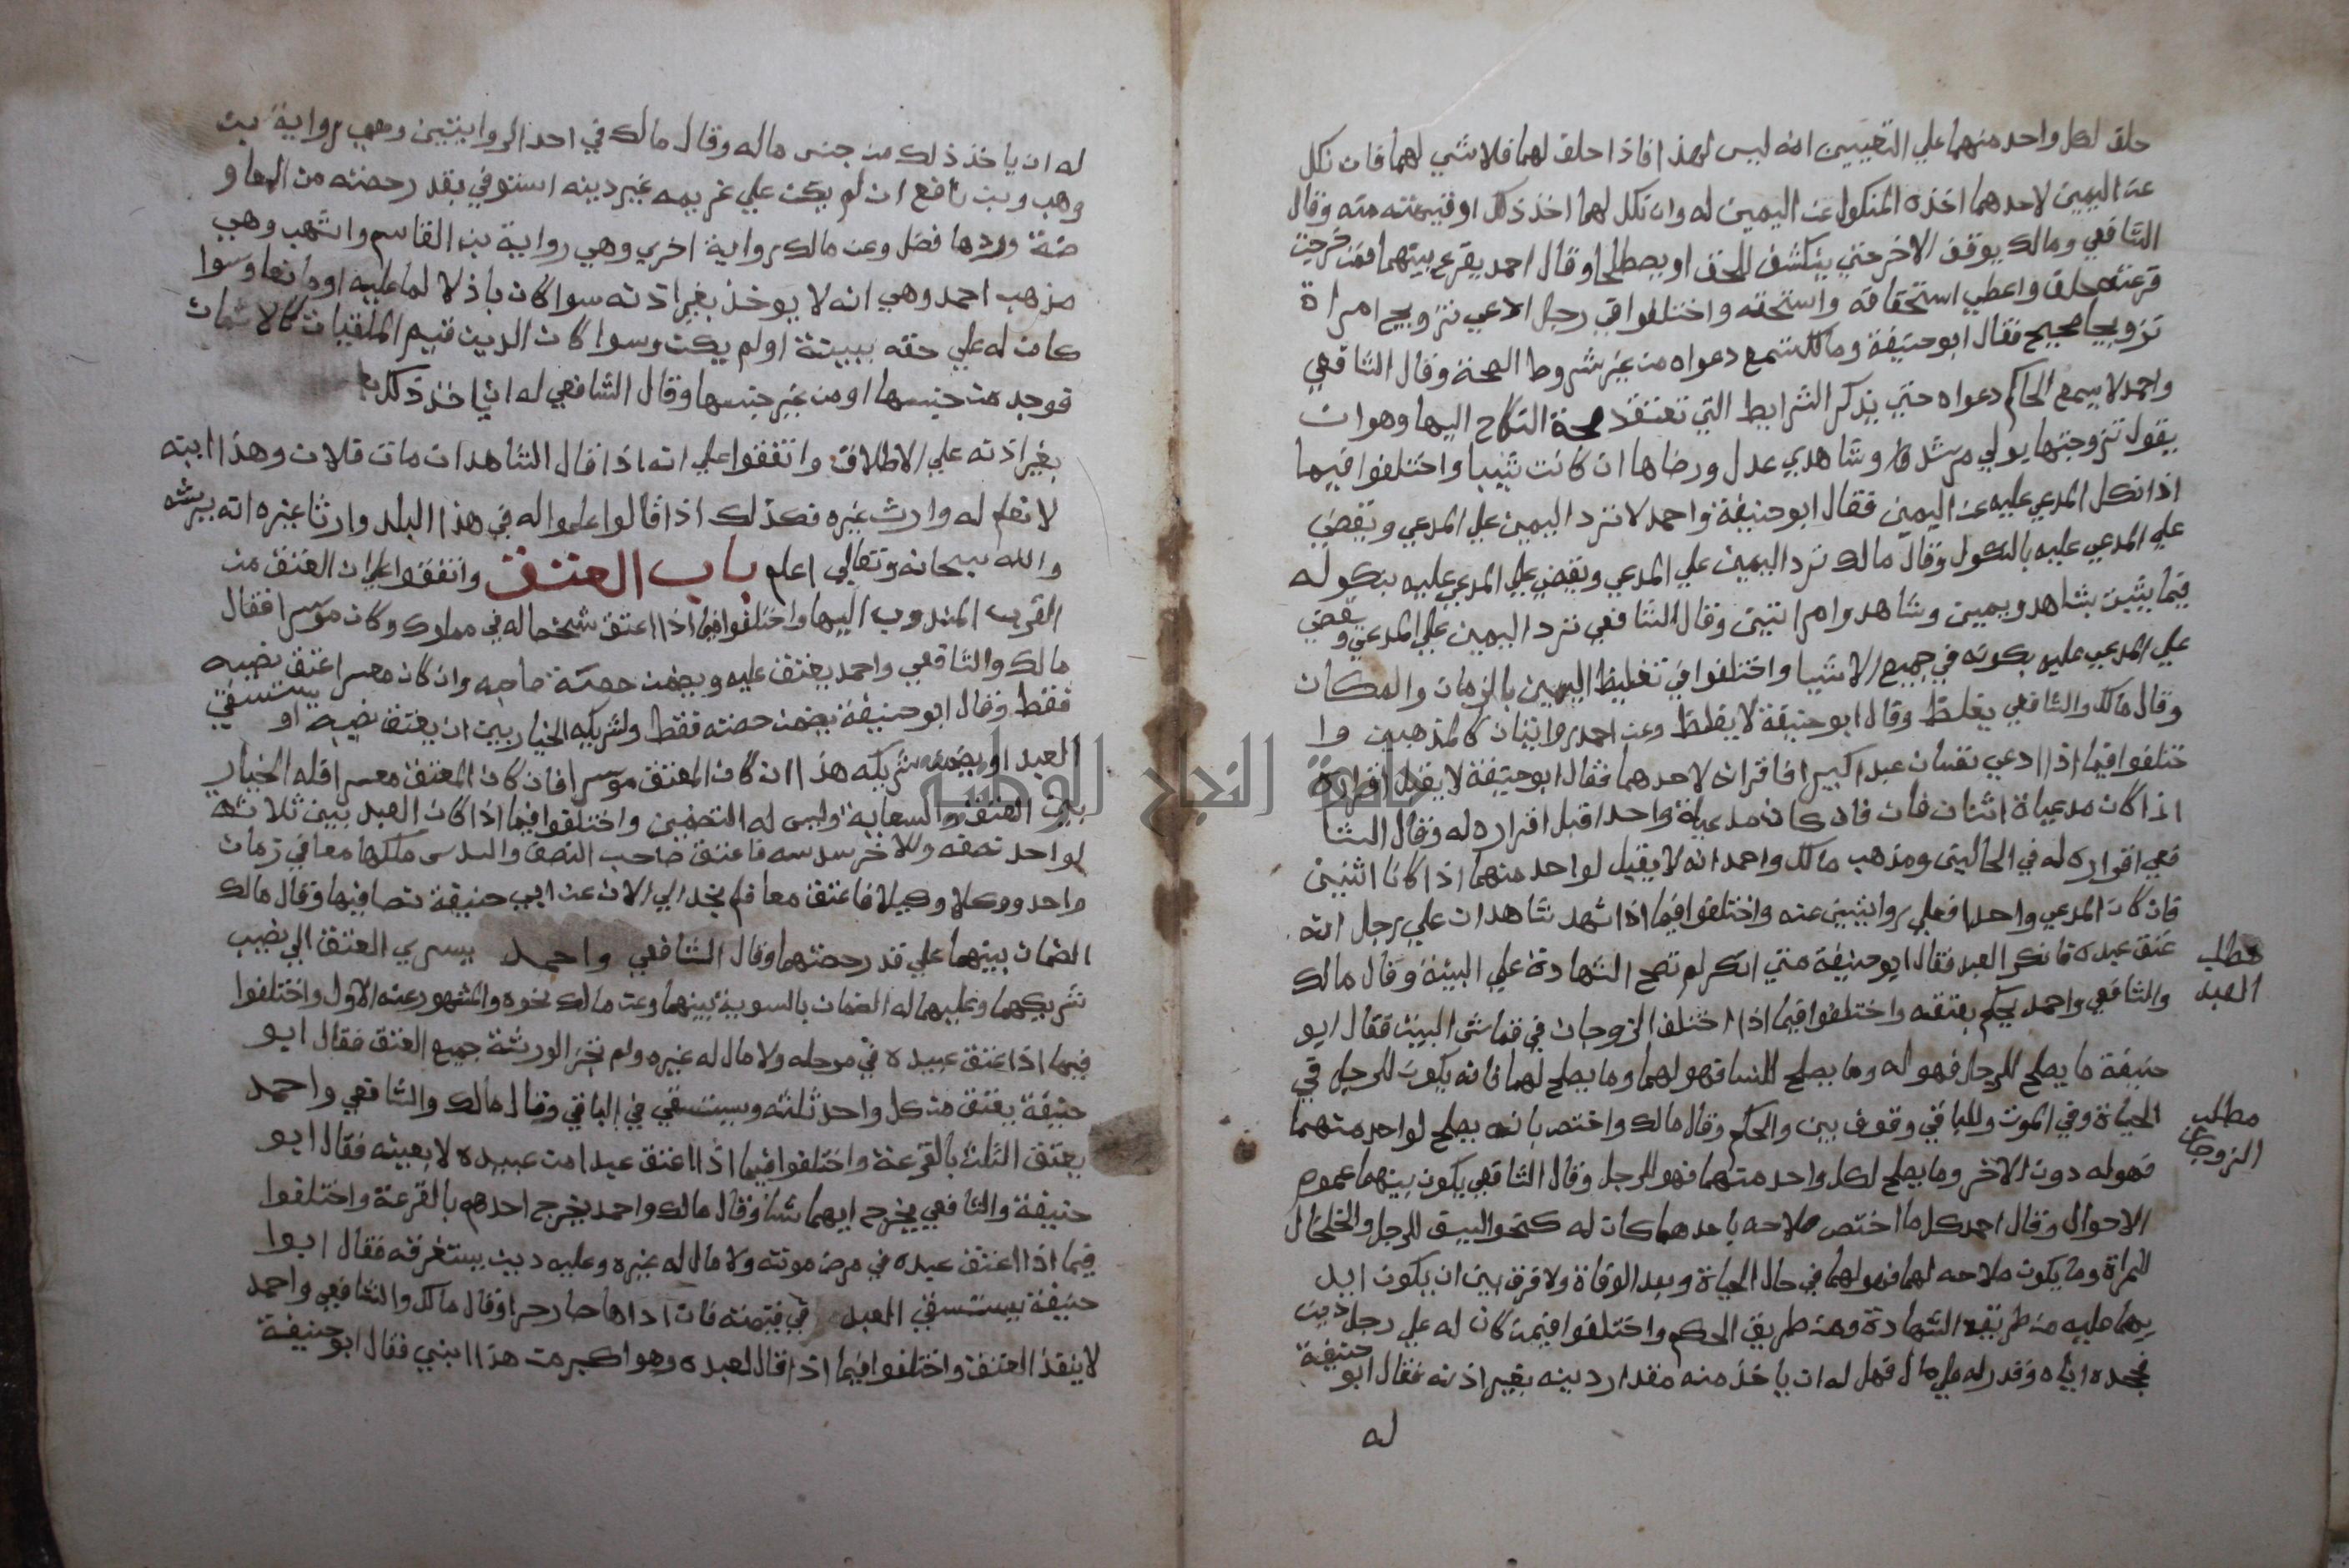 حلف لكل واحد منهما علي التعيين انه ليس لهذا فاذا حلف لهما فلا شي لهما فان نكل
عن اليمين لاحدهما اخذه المنكول عن اليمين له وان نكل لهما اخذ ذلك او قيمته منه وقال
الشافعي ومالك يوقف الاخر حتي ينكشف الحق او يصطلحا وقال احمد يقرع بينهما فمن خرجت
قرعته حلف واعطي استحقاقه واستحقه واختلفوا في رجل ادعي تزويج امراة
تزويجا صحيح فقال ابو حنيفة ومالك تسمع دعواه من غير شروط الصحة وقال الشافعي
واحمد لا يسمع الحاكم دعواه حتي يذكر الشرايط التي تفتقد صحة النكاح اليها وهو ان
يقول تزوجتها بولي مرشد وشاهدي عدل ورضاها ان كانت ثيبا واختلفوا فيما
اذا نكل المدعي عليه عن اليمين فقال ابو حنيفة واحمد لا ترد اليمين علي المدعي وتقضي
علي المدعي عليه بالنكول وقال مالك ترد اليمين علي المدعي ويقضي علي المدعي عليه بنكوله
فيما يثبت بشاهد ويمين وشاهد وامراتين وقال الشافعي ترد اليمين علي المدعي ويقضي
علي المدعي عليه بكونه في جميع الاشيا واختلفوا في تغليظ اليمين بالزمان والمكان
وقال مالك والشافعي يغلظ وقال ابو حنيفة لا يغلظ وعن احمد روايتان كالمذهبين وا
ختلفوا فيما اذا ادعي نفسان عبدا كبيرا فاقر انه لاحدهما فقال ابو حنيفة لا يقبل اقراره
اذا كان مدعياه اثنان فان كان مدعياه واحدا قبل اقراره له وقال الشا
فعي اقراره له في الحاليتي ومذهب مالك واحمد انه لا يقبل لواحد منهما اذا كانا اثنين
فان كان المدعي واحدا فعلي روايتين عنه واختلفوا فيما اذا شهد شاهدان علي رجل انه
عتق عبده فانكر العبد فقال ابو حنيفة متي انكر لم تصح الشهادة علي البينة وقال مالك
والشافعي واحمد يحكم بعتقه واختلفوا فيما اذا اختلف الزوجان في قماش البيت فقال ابو
حنيفة ما يصلح للرجل فهو له وما يصلح للنسا فهو لهما وما يصلح لهما فانه يكون للرجل في
الحياة وفي الموت وللباقي وقوف بين والحكم وقال مالك واختص بانه يصلح لواحد منهما
فهو له دون الاخر وما يصلح لكل واحد منهما فهو للرجل وقال الشافعي يكون بينهما عموم
الاحوال وقال احمد كل ما اختص صلاحه باحدهما كان له كنحو السيف للرجل والخلخال
للمراة وما يكون صلاحه لهما فهو لهما في حال الحياة وبعد الوفاة ولا فرق بين ان يكون ايد
يهما عليه من طريق الشهادة ومن طريق الحكم واختلفوا فيمن كان له علي رجل دين
فجحده اياه وقدر له علي مال فهل له ان ياخذ منه مقدار دينه بغير اذنه فقال ابو حنيفة
له
مطلب
العبد
مطلب
الزوجان
له ان ياخذ ذلك من جنس ماله وقال مالك في احد الروايتين وهي رواية بن
وهب وبن نافع ان لم يكن علي غريمه غير دينه استوفي بقدر حصته من المعاو
ضة وردها فضل وعن مالك رواية اخري وهي رواية بن القاسم واشهب وهي
مذهب احمد وهي انه لا يوخذ بغير اذنه سوا كان باذلا لما عليه او مانعا وسوا
كان له علي حقه ببينة او لم يكن وسوا كان الدين قيم المتلفات كالاثمان
فوجد من جنسها او من غير جنسها وقال الشافعي له ان ياخذ ذلك
بغير اذنه علي الاطلاق واتفقوا علي انه اذا قال الشاهدان مات فلان وهذا ابنه
لا نعلم له وارث غيره فكذلك اذا قالوا علموا له في هذا البلد وارثا غيره انه يرثه
والله سبحانه وتعالي اعلم باب العتق واتفقوا علي ان العتق من
القرب المندوب اليها واختلفوا فيما اذا اعتق شخصا له في مملوك وكان موسرا فقال
مالك والشافعي واحمد يعتق عليه ويضمن حصة صاحبه وان كان معسرا عتق نصيبه
فقط وقال ابو حنيفة يضمن حصته فقط ولشريكه الخيار بين ان يعتق نصيبه او يستسقي
العبد او يضمن شريكه هذا ان كان المعتق موسرا فان كان المعتق معسرا فله الخيار
بين العتق والسعاية وليس له التضمين واختلفوا فيما اذا كان العبد بين ثلاثة
لواحد نصفه وللاخر سدسه فاعتق صاحب النصف والسدس ملكها معا في زمان
واحد ووكلا وكيلا فاعتق معا فلم يخد الان عن ابي حنيفة وقال مالك
الضمان بينهما علي قدر حصتهما وقال الشافعي واحمد يسري العتق الي نصيب
شريكهما وعليهما له الضمان بالسوية بينهما وعن مالك نحوه والمشهور عنه الاول واختلفوا
فيما اذا عتق عبيده في مرضه ولا مال له غيره ولم تجز الورثة جميع العتق فقال ابو
حنيفة يعتق من كل واحد ثلثه ويستسقي في الباقي وقال مالك والشافعي واحمد
يعتق الثلث بالقرعة واختلفوا فيما اذا اعتق عبدا من عبيده لا بعينه فقال ابو
حنيفة والشافعي يخرج ايهما شا وقال مالك واحمد يخرج احدهم بالقرعة واختلفوا
فيما اذا اعتق عبده في مرض موته ولا مال له غيره وعليه دين يستغرقه فقال ابوا
حنيفة يستسقي العبد في قيمته فان اداها صار حرا وقال مالك والشافعي واحمد
لا ينفذ العتق واختلفوا فيما اذا قال لعبده وهو اكبر من هذا ابني فقال ابو حنيفة
جامعة النجاح الوطنية